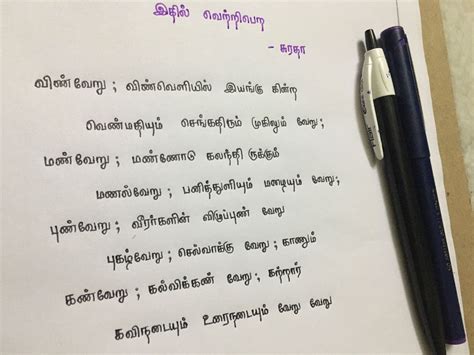 இதில் வெற்றிபெற
- சுரதா
விண்வேறு ; விண்வெளியில் இயங்கு கின்ற
வெண்மதியும் செங்கதிரும் முகிலும் வேறு;
மண்வேறு ; மண்ணோடு கலந்தி ருக்கும்
மணல்வேறு ; பனித்துளியும் மழையும் வேறு;
புண்வேறு ; வீரர்களின் விழுப்புண் வேறு
புகழ்வேறு ; செல்வாக்கு வேறு ; காணும்
கண்வேறு ; கல்விக்கண் வேறு; கற்றார்
கவிநடையும் உரைநடையும் வேறு வேறு